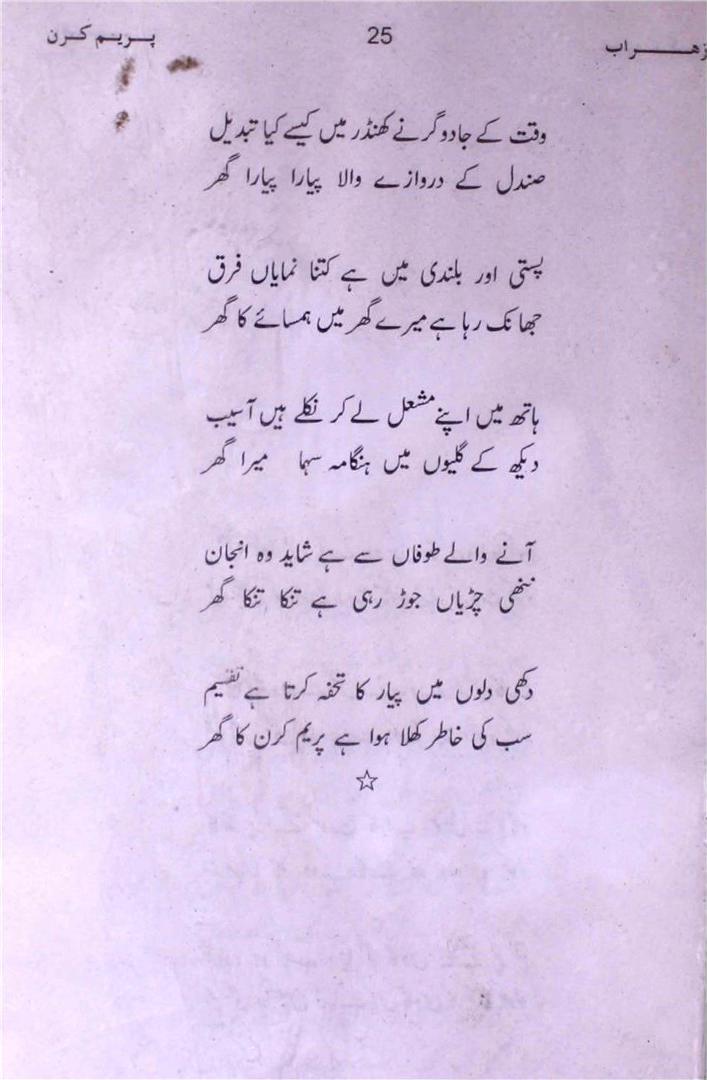 زھراب 25 پریم کرن
وقت کے جادوگر نے کھنڈر میں کیسے کیا تبدیل
صندل کے دروازے والا پیارا پیارا گھر
پستی اور بلندی میں ہے کتنا نمایاں فرق
جھانک رہا ہے میرے گھر میں ہمسائے کا گھر
ہاتھ میں اپنے مشعل لے کر نکلے ہیں آسیب
دیکھ کے گلیوں میں ہنگامہ سہما میرا گھر
آنے والے طوفاں سے ہے شاید وہ انجان
ننھی چڑیاں جوڑ رہی ہے تنکا تنکا گھر
دکھی دلوں میں پیار کا تحفہ کرتا ہے تقسیم
سب کی خاطر کھلا ہوا ہے پریم کرن کا گھر
☆